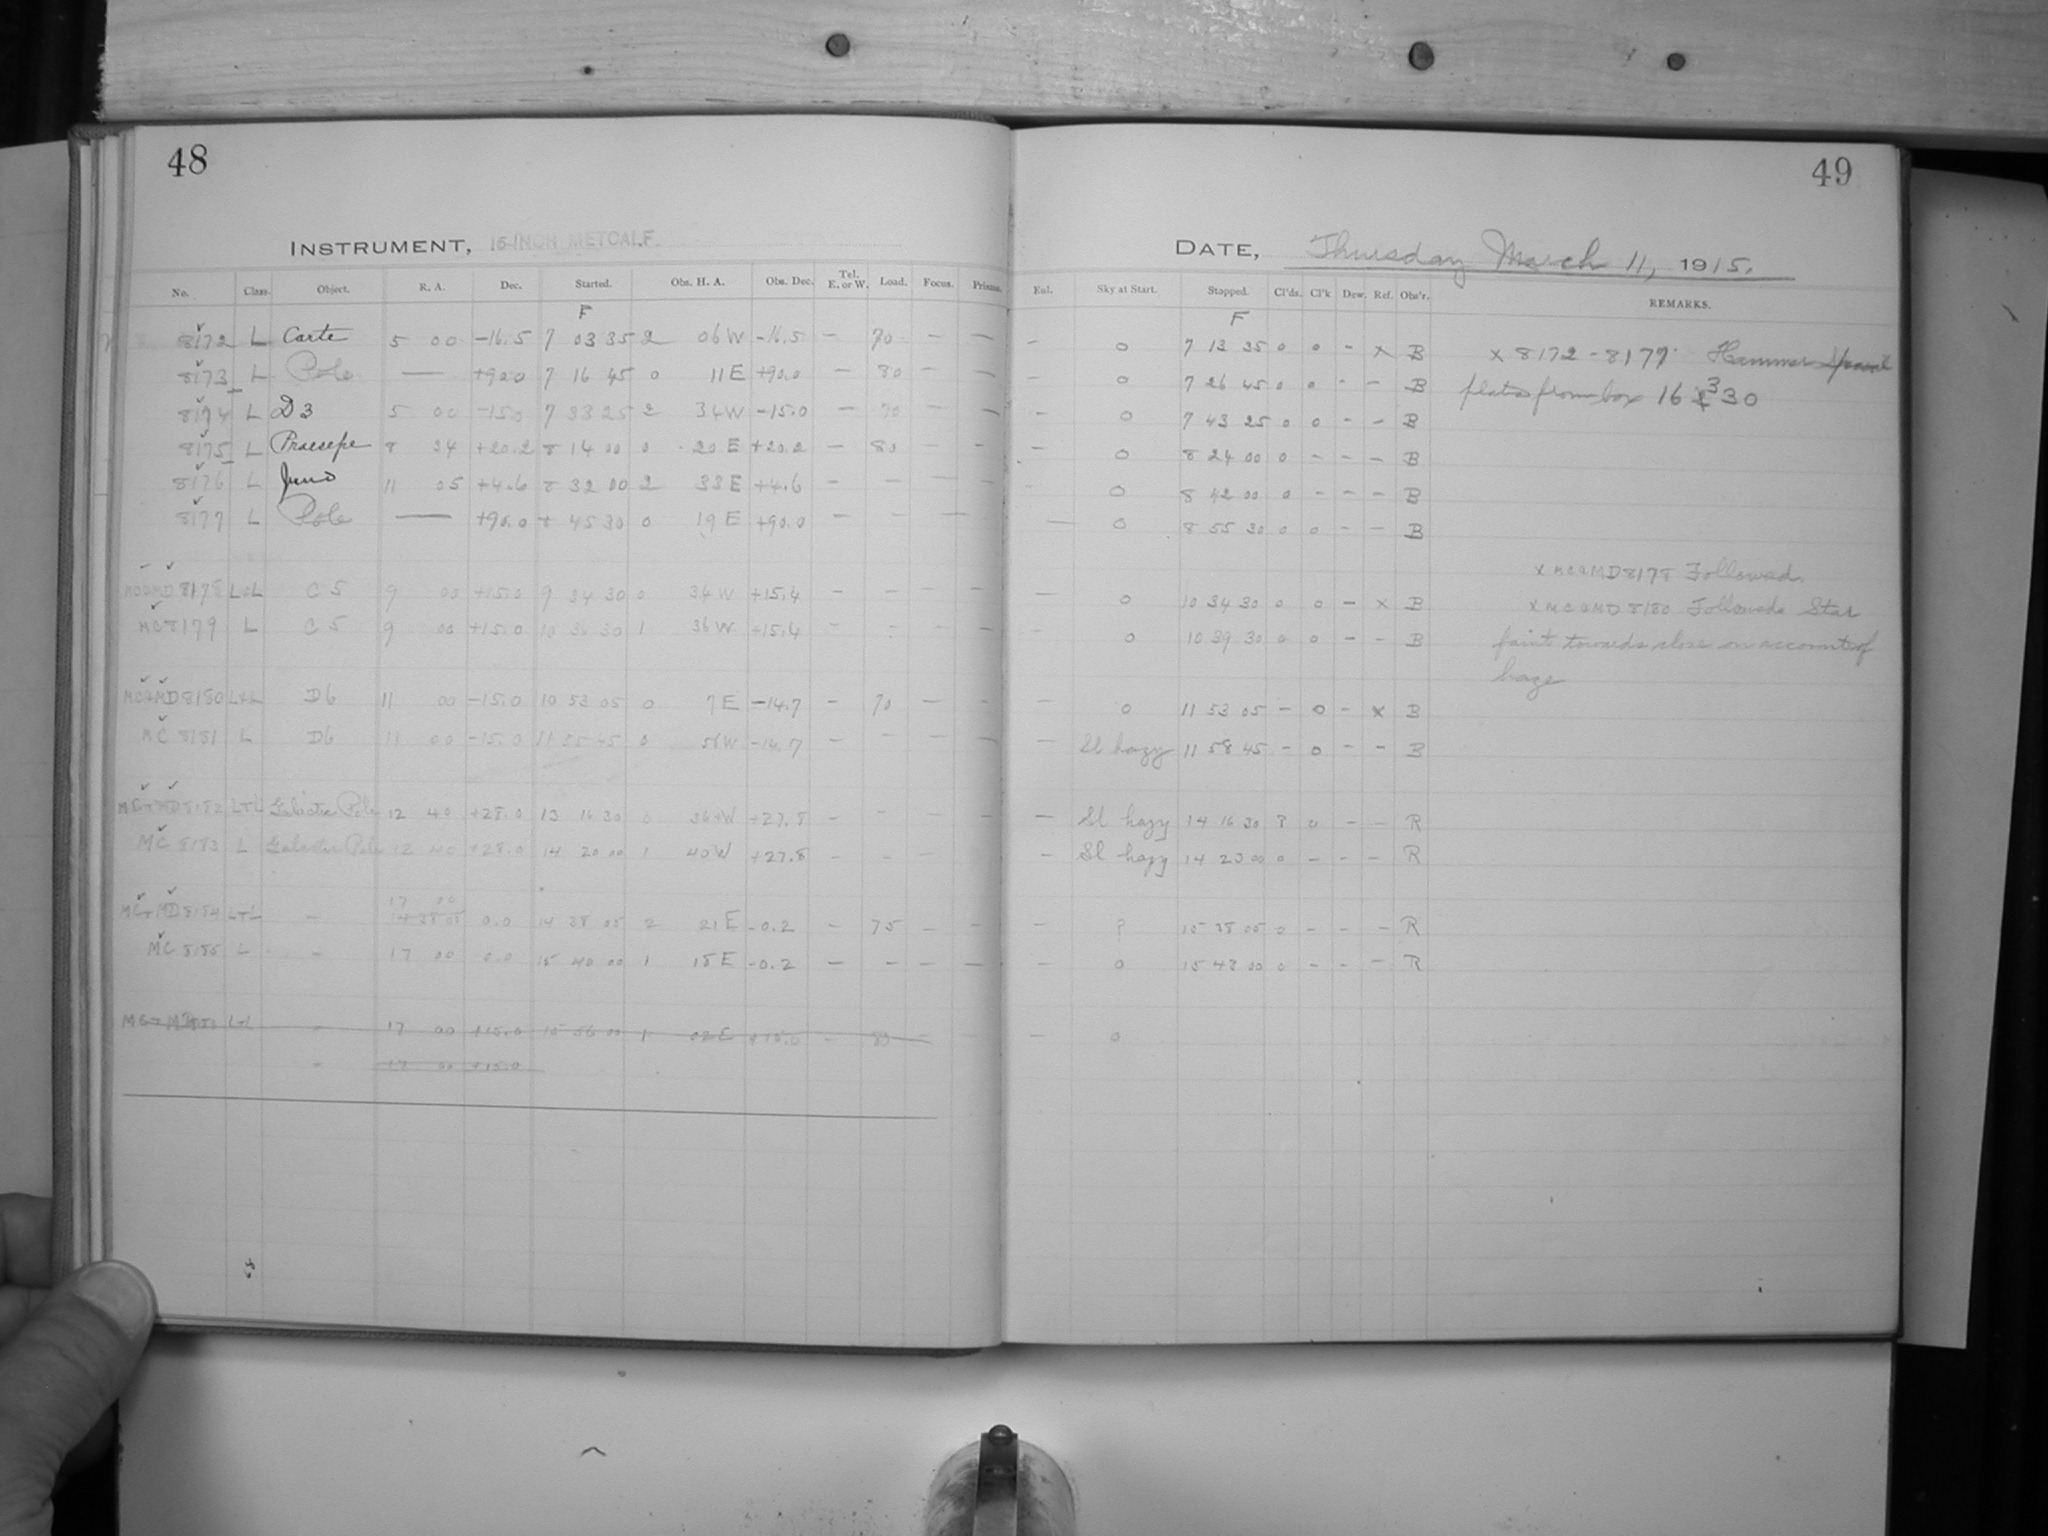 48
49
INSTRUMENT, 16-INCH METCALF.
DATE, Thursday March 11, 1915.
No. Class. Object. R. A. Dec. Started. Obs. H. A. Obs. Dec. Tel. E. or W. Load. Focus. Prisms. Eul. Sky at Start. Stopped. Cl'ds. Cl'k Dew. Ref. Obs'r. REMARKS.
F F
8172 L Carte 5 00 -16.5 7 03 35 2 06 W -16.5 - 70 - - - 0 7 13 35 0 0 - x B x 8172 - 8177 Hammer Special
8173 L Pole — +90.0 7 16 45 0 11 E +90.0 - 80 - - - 0 7 26 45 0 0 - - B plates from box 16 3 30
8174 L D3 5 00 -15.0 7 33 25 2 34 W -15.0 - 70 - - - 0 7 43 25 0 0 - - B
8175 L Praesepe 8 34 +20.2 8 14 00 0 20 E +20.2 - 80 - - - 0 8 24 00 0 - - - B
8176 L Juno 11 05 +4.6 8 32 00 2 33 E +4.6 - - - - 0 8 42 00 0 - - - B
8177 L Pole — +90.0 8 45 30 0 19 E +90.0 - - - — 0 8 55 30 0 0 - - B
x MC&MD 8178 Followed.
MC&MD 8178 L&L C5 9 00 +15.0 9 34 30 0 34 W +15.4 - - - - - 0 10 34 30 0 0 - x B x MC&MD 8180 Followed. Star
MC 8179 L C5 9 00 +15.0 10 36 30 1 36 W +15.4 - - - - - 0 10 39 30 0 0 - - B faint towards close on account of
haze
MC&MD 8180 L&L D6 11 00 -15.0 10 53 05 0 7 E -14.7 - 70 - - - 0 11 53 05 - 0 - x B
MC 8181 L D6 11 00 -15.0 11 55 45 0 56 W -14.7 - - - - - Sl hazy 11 58 45 - 0 - - B
MC+MD 8182 L+L Galactic Pole 12 40 +28.0 13 16 30 0 36 W +27.8 - - - - - Sl hazy 14 16 30 ? 0 - - R
MC 8183 L Galactic Pole 12 40 +28.0 14 20 00 1 40 W +27.8 - - - - Sl hazy 14 23 00 0 - - - R
17 00
MC+MD 8184 L+L - 14 38 05 0.0 14 38 05 2 21 E -0.2 - 75 - - - ? 15 38 05 0 - - - R
MC 8185 L - 17 00 0.0 15 40 00 1 18 E -0.2 - - - - - 0 15 43 00 0 - - - R
MC+MD L+L - 17 00 +15.0 15 56 00 1 02 E +15.0 - 80 - - - 0
- 17 00 +15.0